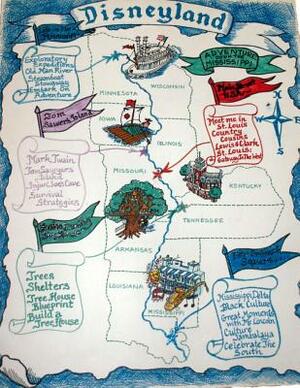 Disneyland
Exploratory
Expeditions
Old Man River
Steamboat
Stowaway
Embark On
Adventure
WISCONSIN
ADVENTURE
MISSISSIPPI
MINNESOTA
Meet me in
St Louis
Country
Cousins
Lewis & Clark
St. Louis:
Gateway To The West
Tom
Sawyer's Island
IOWA
ILLINOIS
Mark Twain
Tom Sawyer's
Island
Injun Joe's Cave
Survival
Strategies
MISSOURI
KENTUCKY
TENNESSEE
Trees
Shelters
Tree House
Blueprint
Build a
Tree House
ARKANSAS
LOUISIANA
MISSISSIPPI
Mississippi Delta
Black Culture
Great Moments
with Mr. Lincoln
Culture
Jambalaya
Celebrate The
South